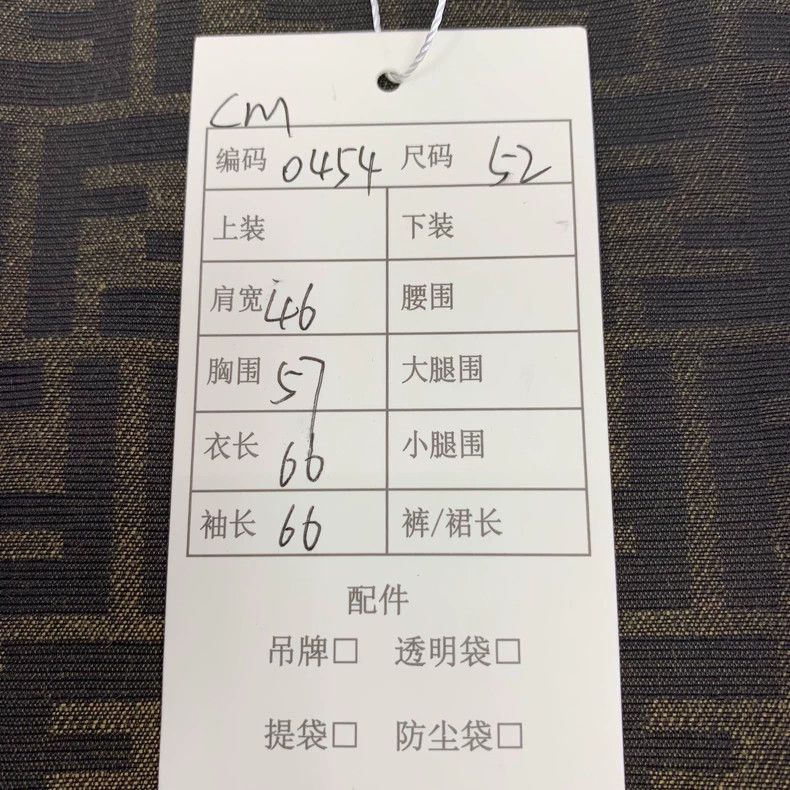 CM
编码 0454 尺码 52
上装 下装
肩宽 46 腰围
胸围 57 大腿围
衣长 66 小腿围
袖长 66 裤/裙长
配件
吊牌□ 透明袋□
提袋□ 防尘袋□